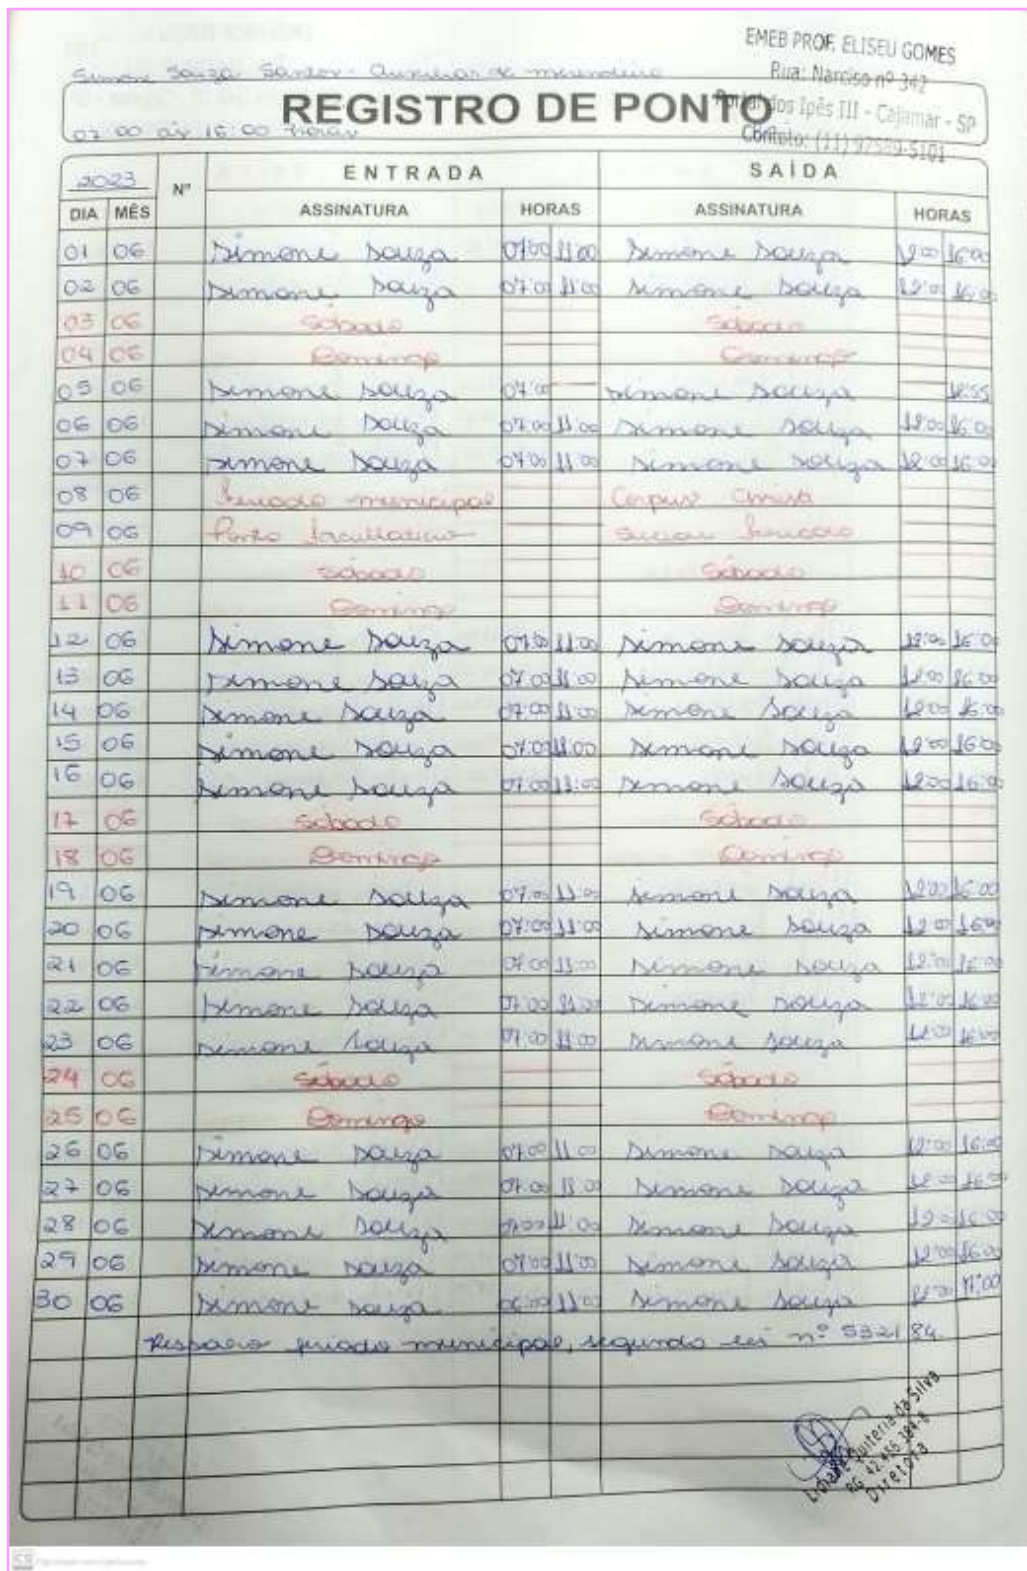 EMEB PROF. ELISEU GOMES
Simone Souza Santos - Auxiliar de merendeira
Rua: Narciso nº 342
REGISTRO DE PONTO
Portal dos Ipês III - Cajamar - SP
07:00 às 16:00 horas
Contato: (11) 97589-5101
2023 Nº ENTRADA SAÍDA
DIA MÊS ASSINATURA HORAS ASSINATURA HORAS
01 06 Simone Souza 07:00 11:00 Simone Souza 12:00 16:00
02 06 Simone Souza 07:00 11:00 Simone Souza 12:00 16:00
03 06 Sábado Sábado
04 06 Domingo Domingo
05 06 Simone Souza 07:00 Simone Souza 12:55
06 06 Simone Souza 07:00 11:00 Simone Souza 12:00 16:00
07 06 Simone Souza 07:00 11:00 Simone Souza 12:00 16:00
08 06 Feriado municipal Corpus Christi
09 06 Ponto facultativo
10 06 Sábado Sábado
11 06 Domingo Domingo
12 06 Simone Souza 07:00 11:00 Simone Souza 12:00 16:00
13 06 Simone Souza 07:00 11:00 Simone Souza 12:00 16:00
14 06 Simone Souza 07:00 11:00 Simone Souza 12:00 16:00
15 06 Simone Souza 07:00 11:00 Simone Souza 12:00 16:00
16 06 Simone Souza 07:00 11:00 Simone Souza 12:00 16:00
17 06 Sábado Sábado
18 06 Domingo Domingo
19 06 Simone Souza 07:00 11:00 Simone Souza 12:00 16:00
20 06 Simone Souza 07:00 11:00 Simone Souza 12:00 16:00
21 06 Simone Souza 07:00 11:00 Simone Souza 12:00 16:00
22 06 Simone Souza 07:00 11:00 Simone Souza 12:00 16:00
23 06 Simone Souza 07:00 11:00 Simone Souza 12:00 16:00
24 06 Sábado Sábado
25 06 Domingo Domingo
26 06 Simone Souza 07:00 11:00 Simone Souza 12:00 16:00
27 06 Simone Souza 07:00 11:00 Simone Souza 12:00 16:00
28 06 Simone Souza 07:00 11:00 Simone Souza 12:00 16:00
29 06 Simone Souza 07:00 11:00 Simone Souza 12:00 16:00
30 06 Simone Souza 06:00 11:00 Simone Souza 12:00 17:00
municipal, segundo lei nº 532/84
Quiteria da Silva
RG
Diretora
CS